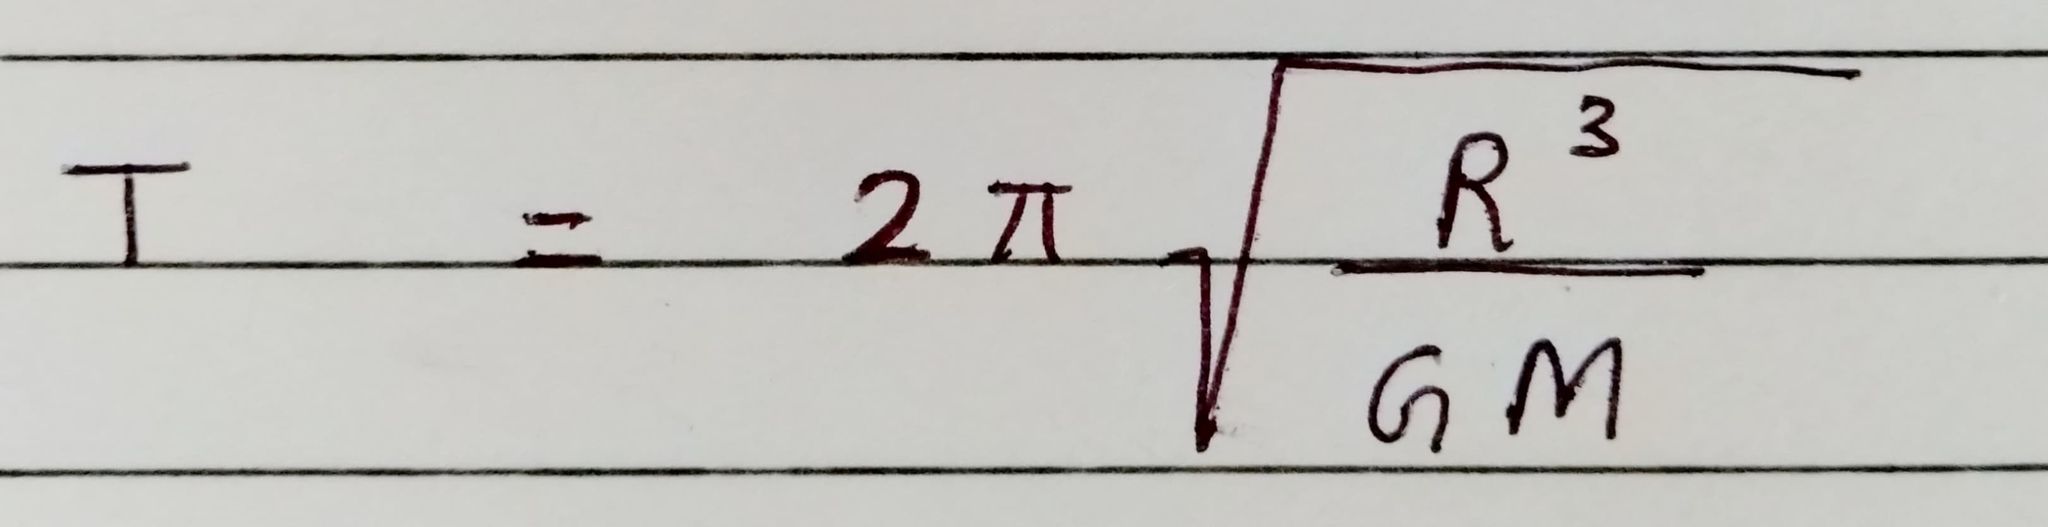 T = 2π√(R³/GM)